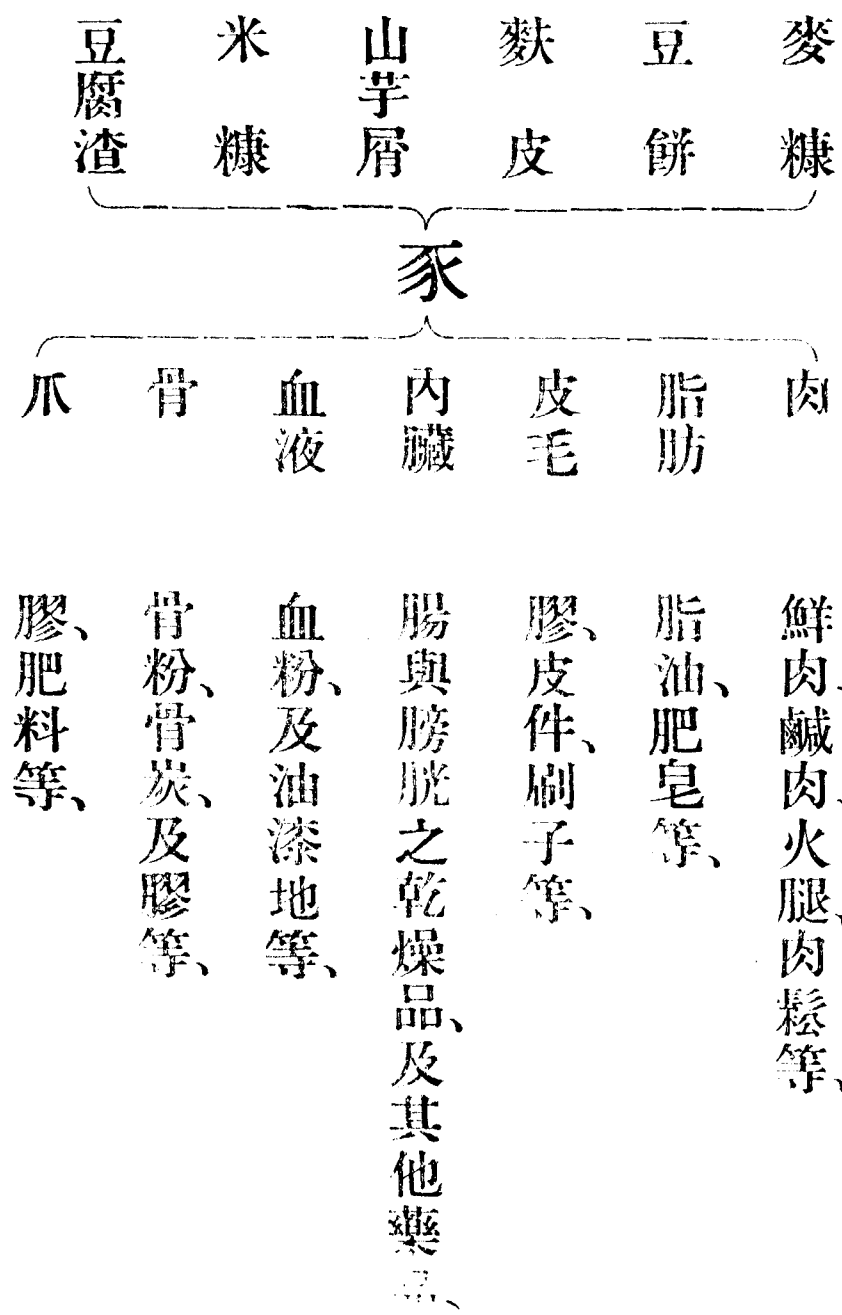 麥糠
豆餅
麩皮
山芋屑
米糠
豆腐渣
豕
肉
鮮肉、鹹肉、火腿、肉鬆等、
脂肪
脂油、肥皂等、
皮毛
膠、皮件、刷子等、
內臟
腸與膀胱之乾燥品、及其他藥品、
血液
血粉、及油漆地等、
骨
骨粉、骨炭、及膠等、
爪
膠、肥料等、